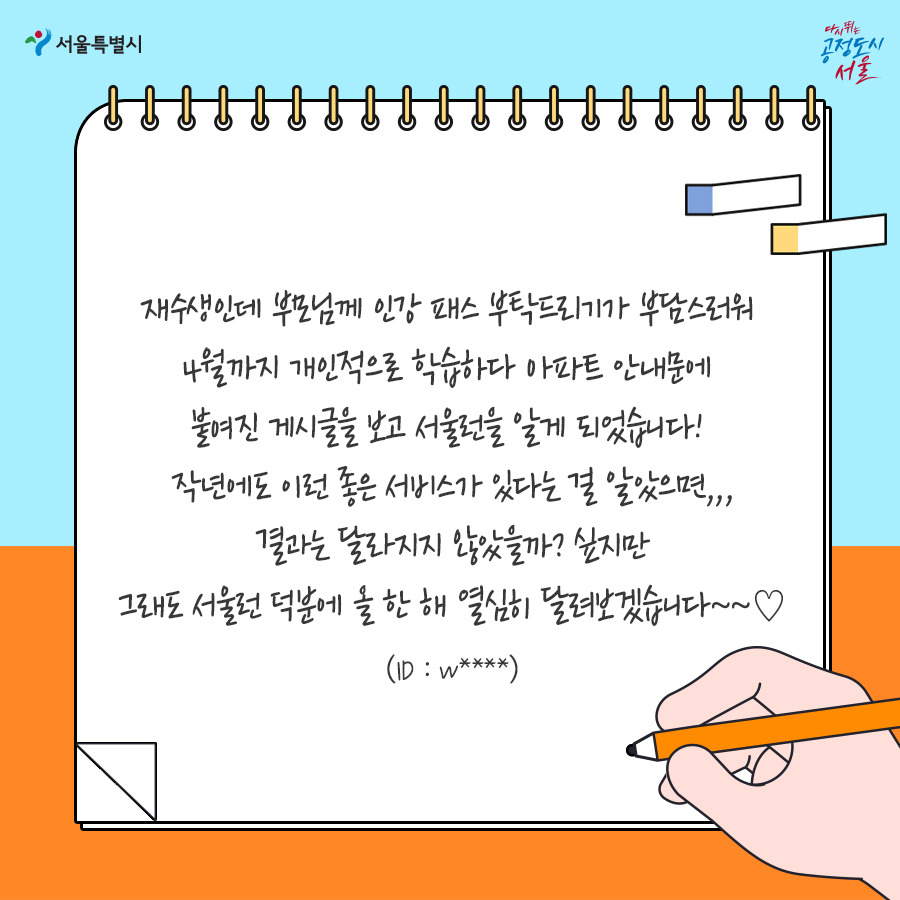 서울특별시
다시 뛰는
공정도시
서울
재수생인데 부모님께 인강 패스 부탁드리기가 부담스러워
4월까지 개인적으로 학습하다 아파트 안내문에
붙여진 게시글을 보고 서울런을 알게 되었습니다!
작년에도 이런 좋은 서비스가 있다는 걸 알았으면,,,
결과는 달라지지 않았을까? 싶지만
그래도 서울런 덕분에 올 한 해 열심히 달려보겠습니다~~♡
(ID : w****)